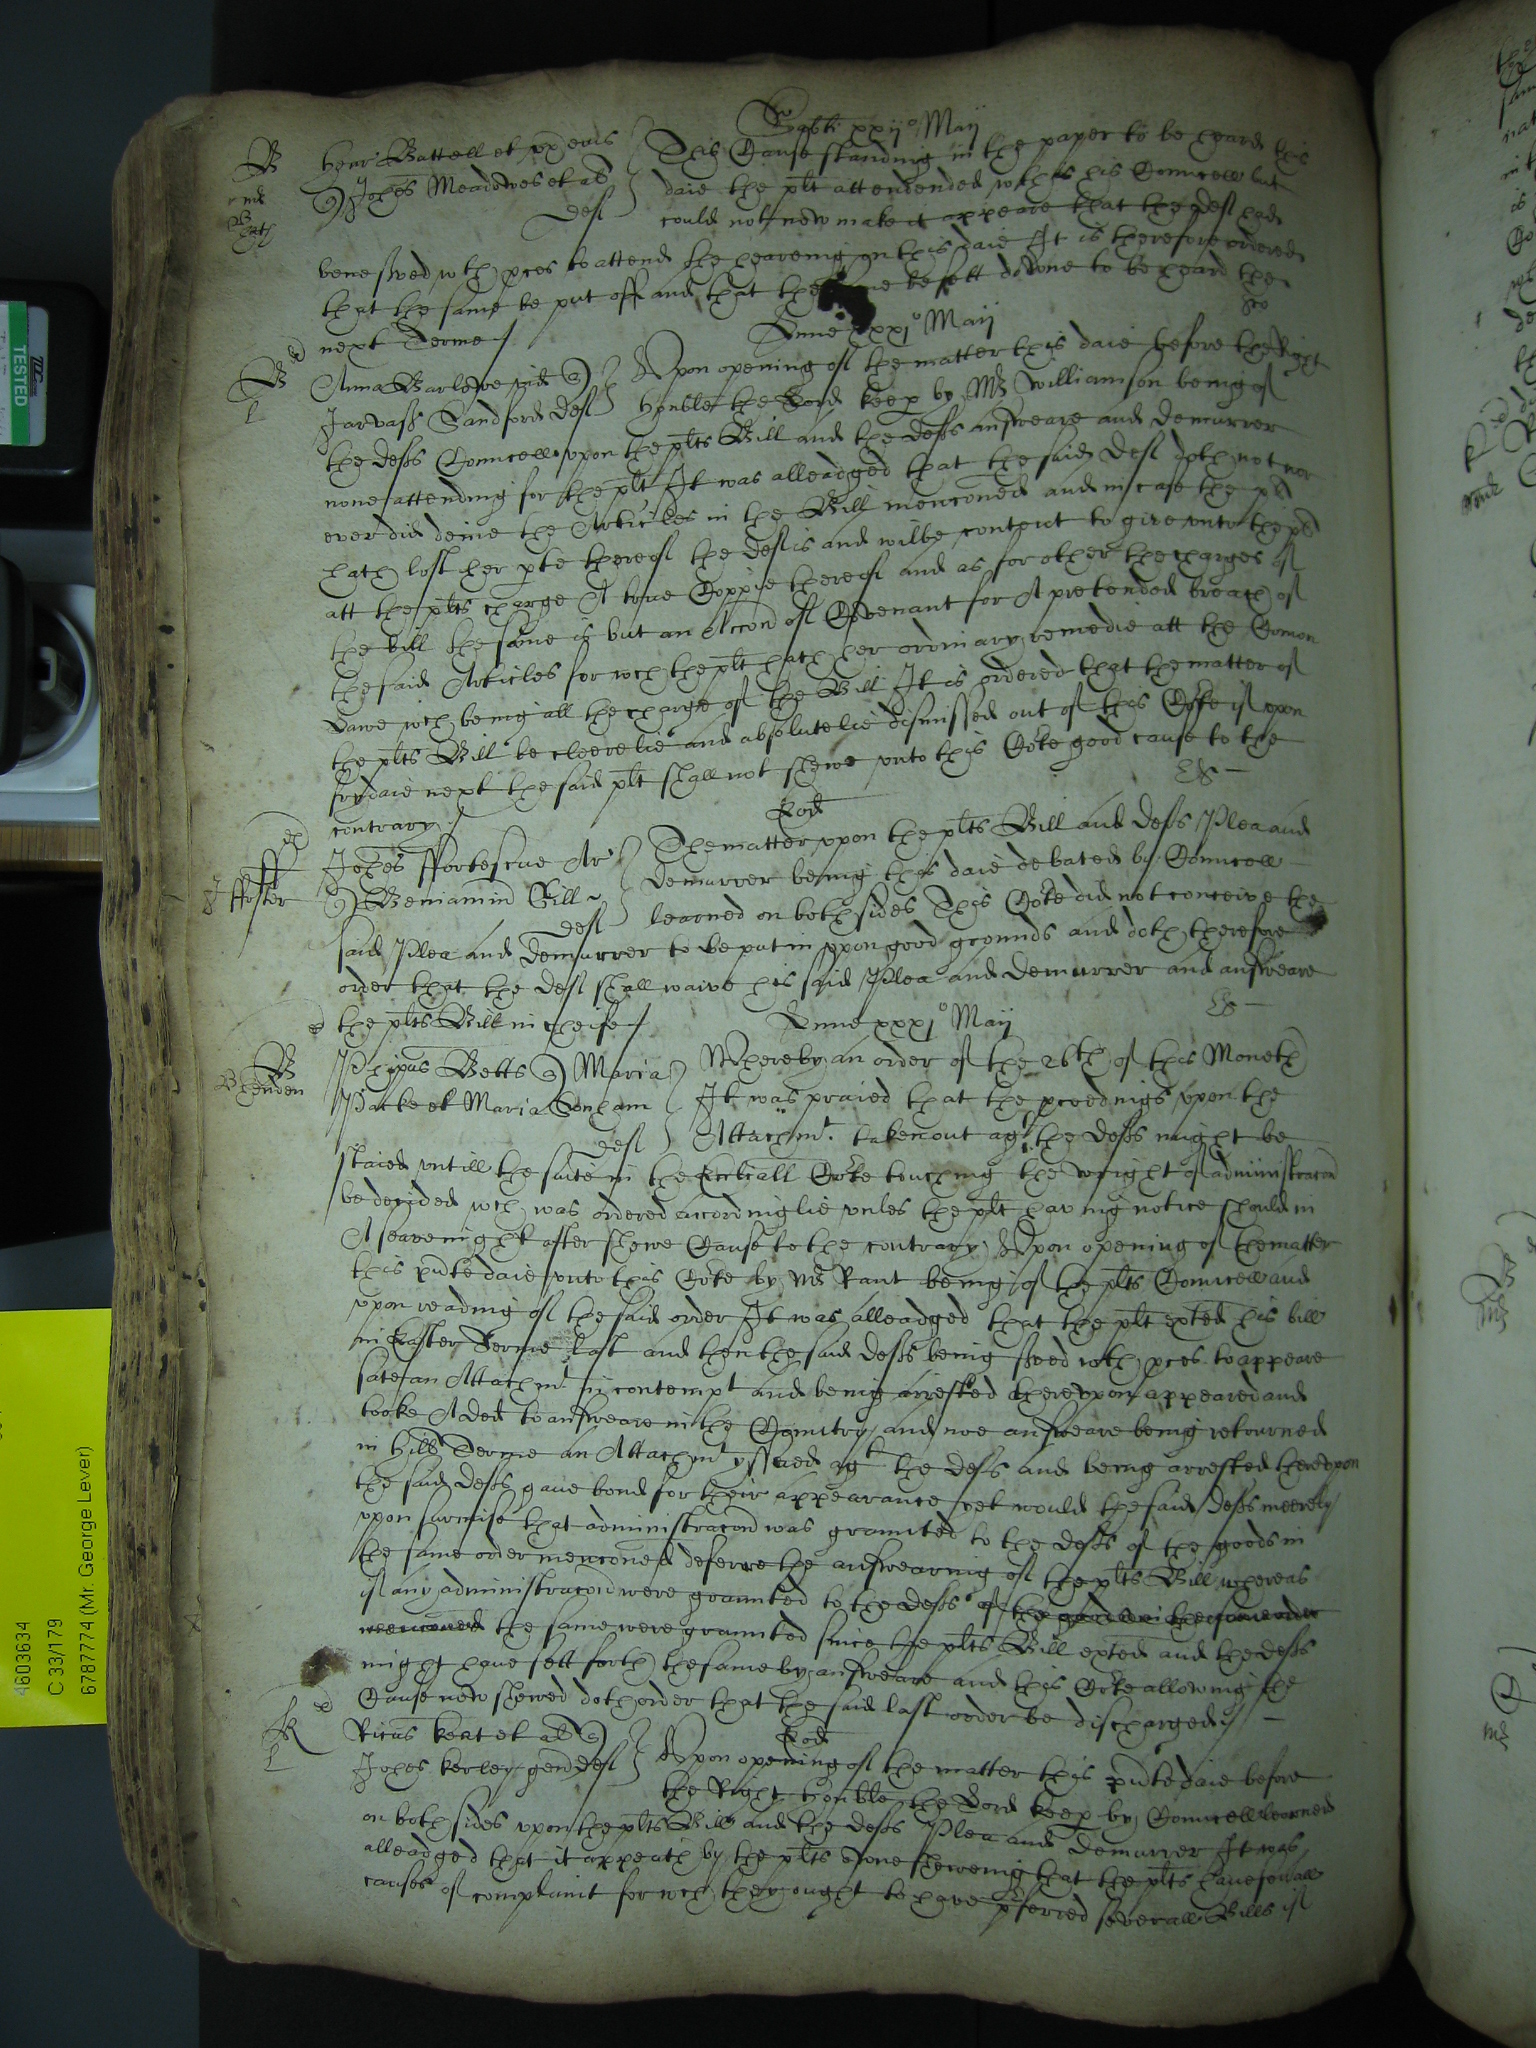 Sabti xxijo Maij
Henr Battell et ux eius
v Johes Meadowes et al
def
This Cause standing in the paper to be heard this
daie the plt attendended wth his Councell but
could not now make it appeare that the def had
bene served wth pces to attend the heareing on this daie It is therefore ordered
that the same be put off and that the be sett downe to be heard the
next Terme
Lune xxxjo Maij
B
Anna Barlowe vid v
Jarvass Sandford def
Upon opening of the matter this daie before the Right
honble the Lord keep by Mr Williamson being of
the defts Councell upon the plts Bill and the defts answeare and demurrer
none attending for the plt It was alleadged that the said def doth not nor
ever did denie the Articles in the Bill menconed and in case the plt
hath lost her pte thereof the def is and wilbe content to give unto the plt
att the plts charge A true Coppie thereof and as for other the charges of
the bill the same is but an Accon of Covenant for A pretended breach of
the said Articles for wch the plt hath her ordinary remedie att the Comon
Lawe wch being all the charge of the Bill It is ordered that the matter of
the plts Bill be cleerelie and absolutelie dismissed out of this Corte if upon
frydaie next the said plt shall not shewe unto this Corte good cause to the
contrary
Eod
ff
ffoster
Johes ffortescue Ar
v Beniamin Gill
def
The matter upon the plts Bill and defts Plea and
demurrer being this daie debated by Councell
learned on both sides This Corte did not conceive the
said Plea and demurrer to be put in upon good grounds and doth therefore
order that the def shall waive his said Plea and demurrer and answeare
the plts Bill in cheife
Lune xxxjo Maij
B
Phipus Betts v Maria
Parke et Maria Sonham
def
Whereby an order of the 26th of this Moneth
It was praied that the pceedings upon the
Attachmt taken out agt the defts might be
staied untill the suite in the Corte touching the wright of administracon
be decided wch was ordered accordinglie unles the plt having notice should in
A seavenight after shewe Cause to the contrary Upon opening of the matter
this pnte daie unto this Corte by Mr Rant being of the plts Councell and
upon reading of the said order It was alleadged that the plt exted his bill
in Easter Terme last and then the said defts being served wth pces to appeare
sate an Attachmt in contempt and being arrested thereupon appeared and
tooke A ded to answeare in the Countrey and noe answeare being retourned
in Hill Terme an Attachmt yssued agt the defts and being arrested thereupon
the said defts gave bond for their appearance yet would the said defts meerely
upon surmise that administracon was graunted to the defts of the goods in
the same order menconed deferre the answearing of the plts Bill whereas
if any administracon were graunted to the defts of the goods in the same order
menconed the same were graunted since the plts Bill exted and the defts
might have sett forth the same by answeare and this Corte allowing the
Cause now shewed doth order that the said last order be discharged
Eod
K
Ricus kent et al v
Johes kerley gen def
Upon opening of the matter this pnte daie before
the Right honble the Lord keep by Councell learned
on both sides upon the plts Bill and the defts Plea and demurrer It was
alleadged that it appeareth by the plts owne shewing that the plts have severall
causes of complaint for wch they ought to have pferred severall Bills if
TESTED
4603634
C 33/179
6787774 (Mr. George Lever)